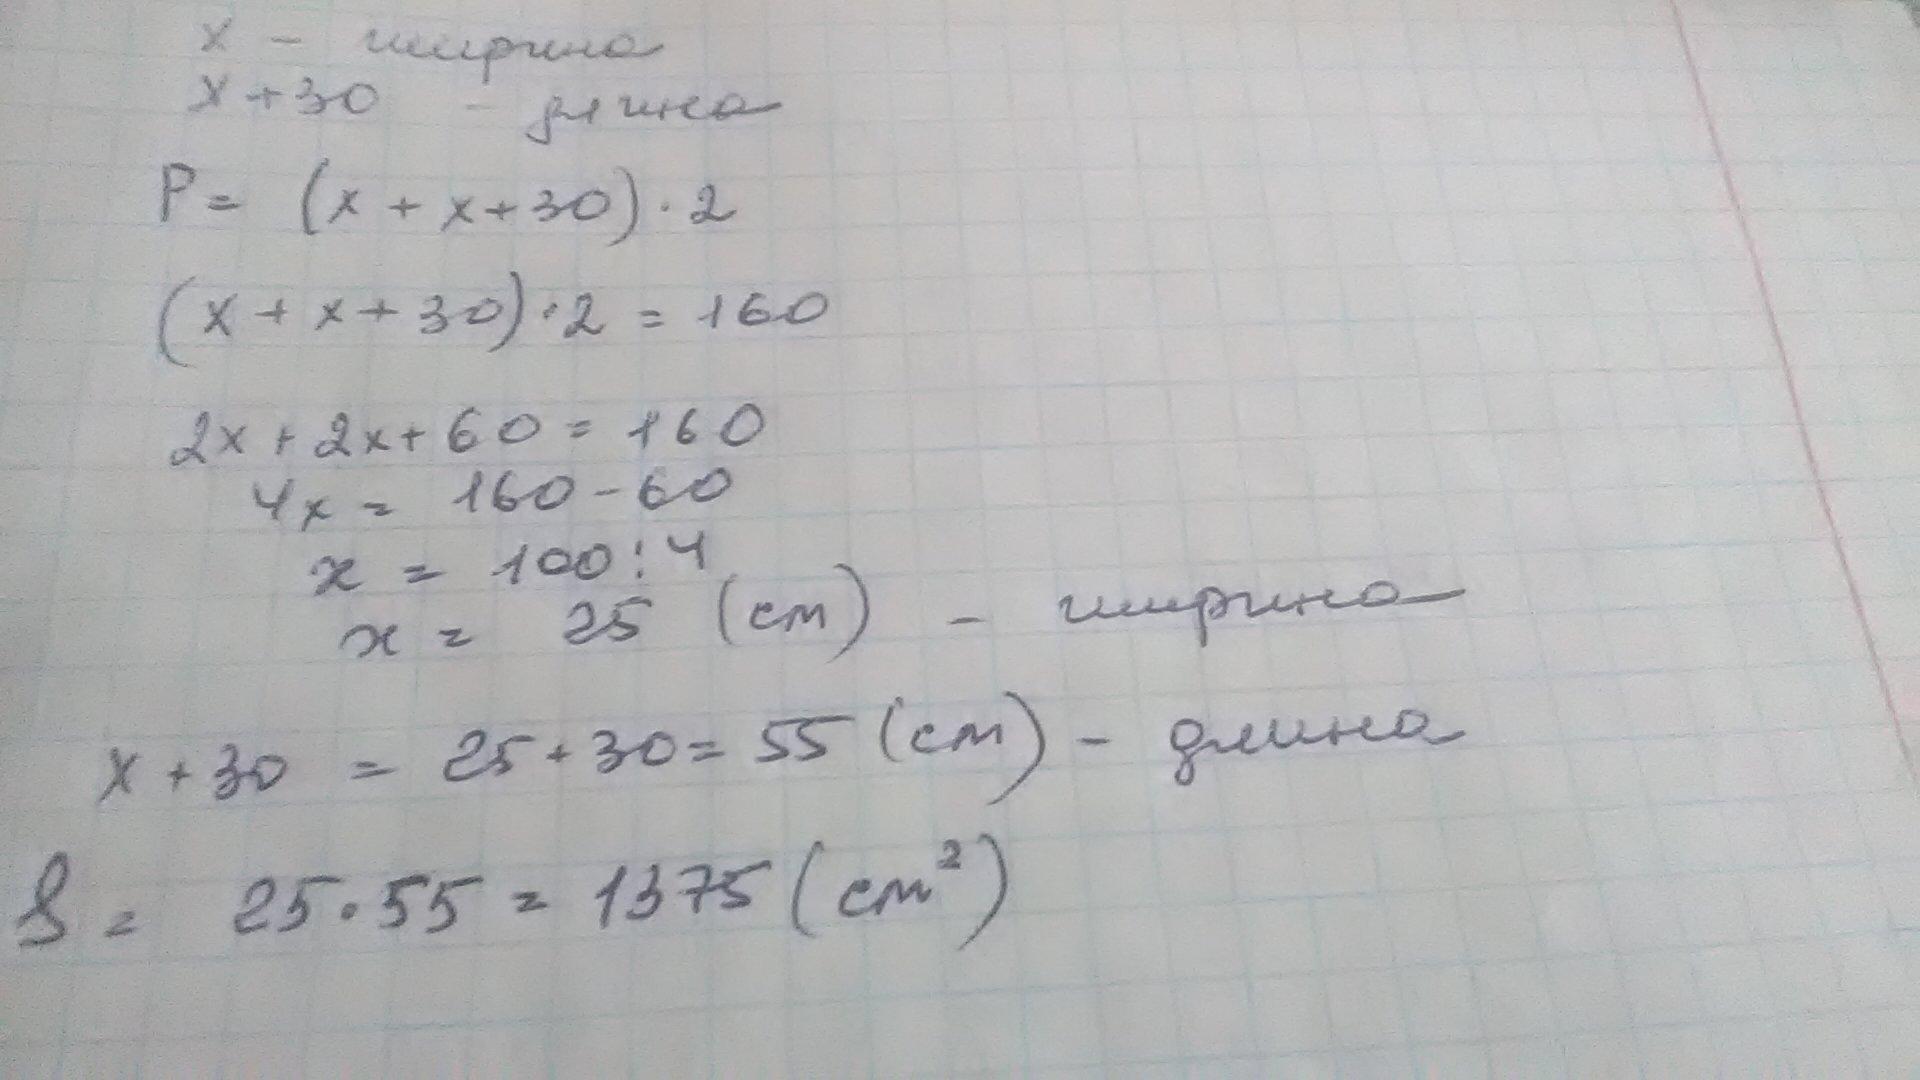 x - ширина
x+30 - длина
P= (x + x+30)·2
(x + x+30)·2 = 160
2x+2x+60 = 160
4x = 160-60
x = 100:4
x = 25 (см) - ширина
x+30 = 25+30=55 (см) - длина
S = 25·55 = 1375 (см²)